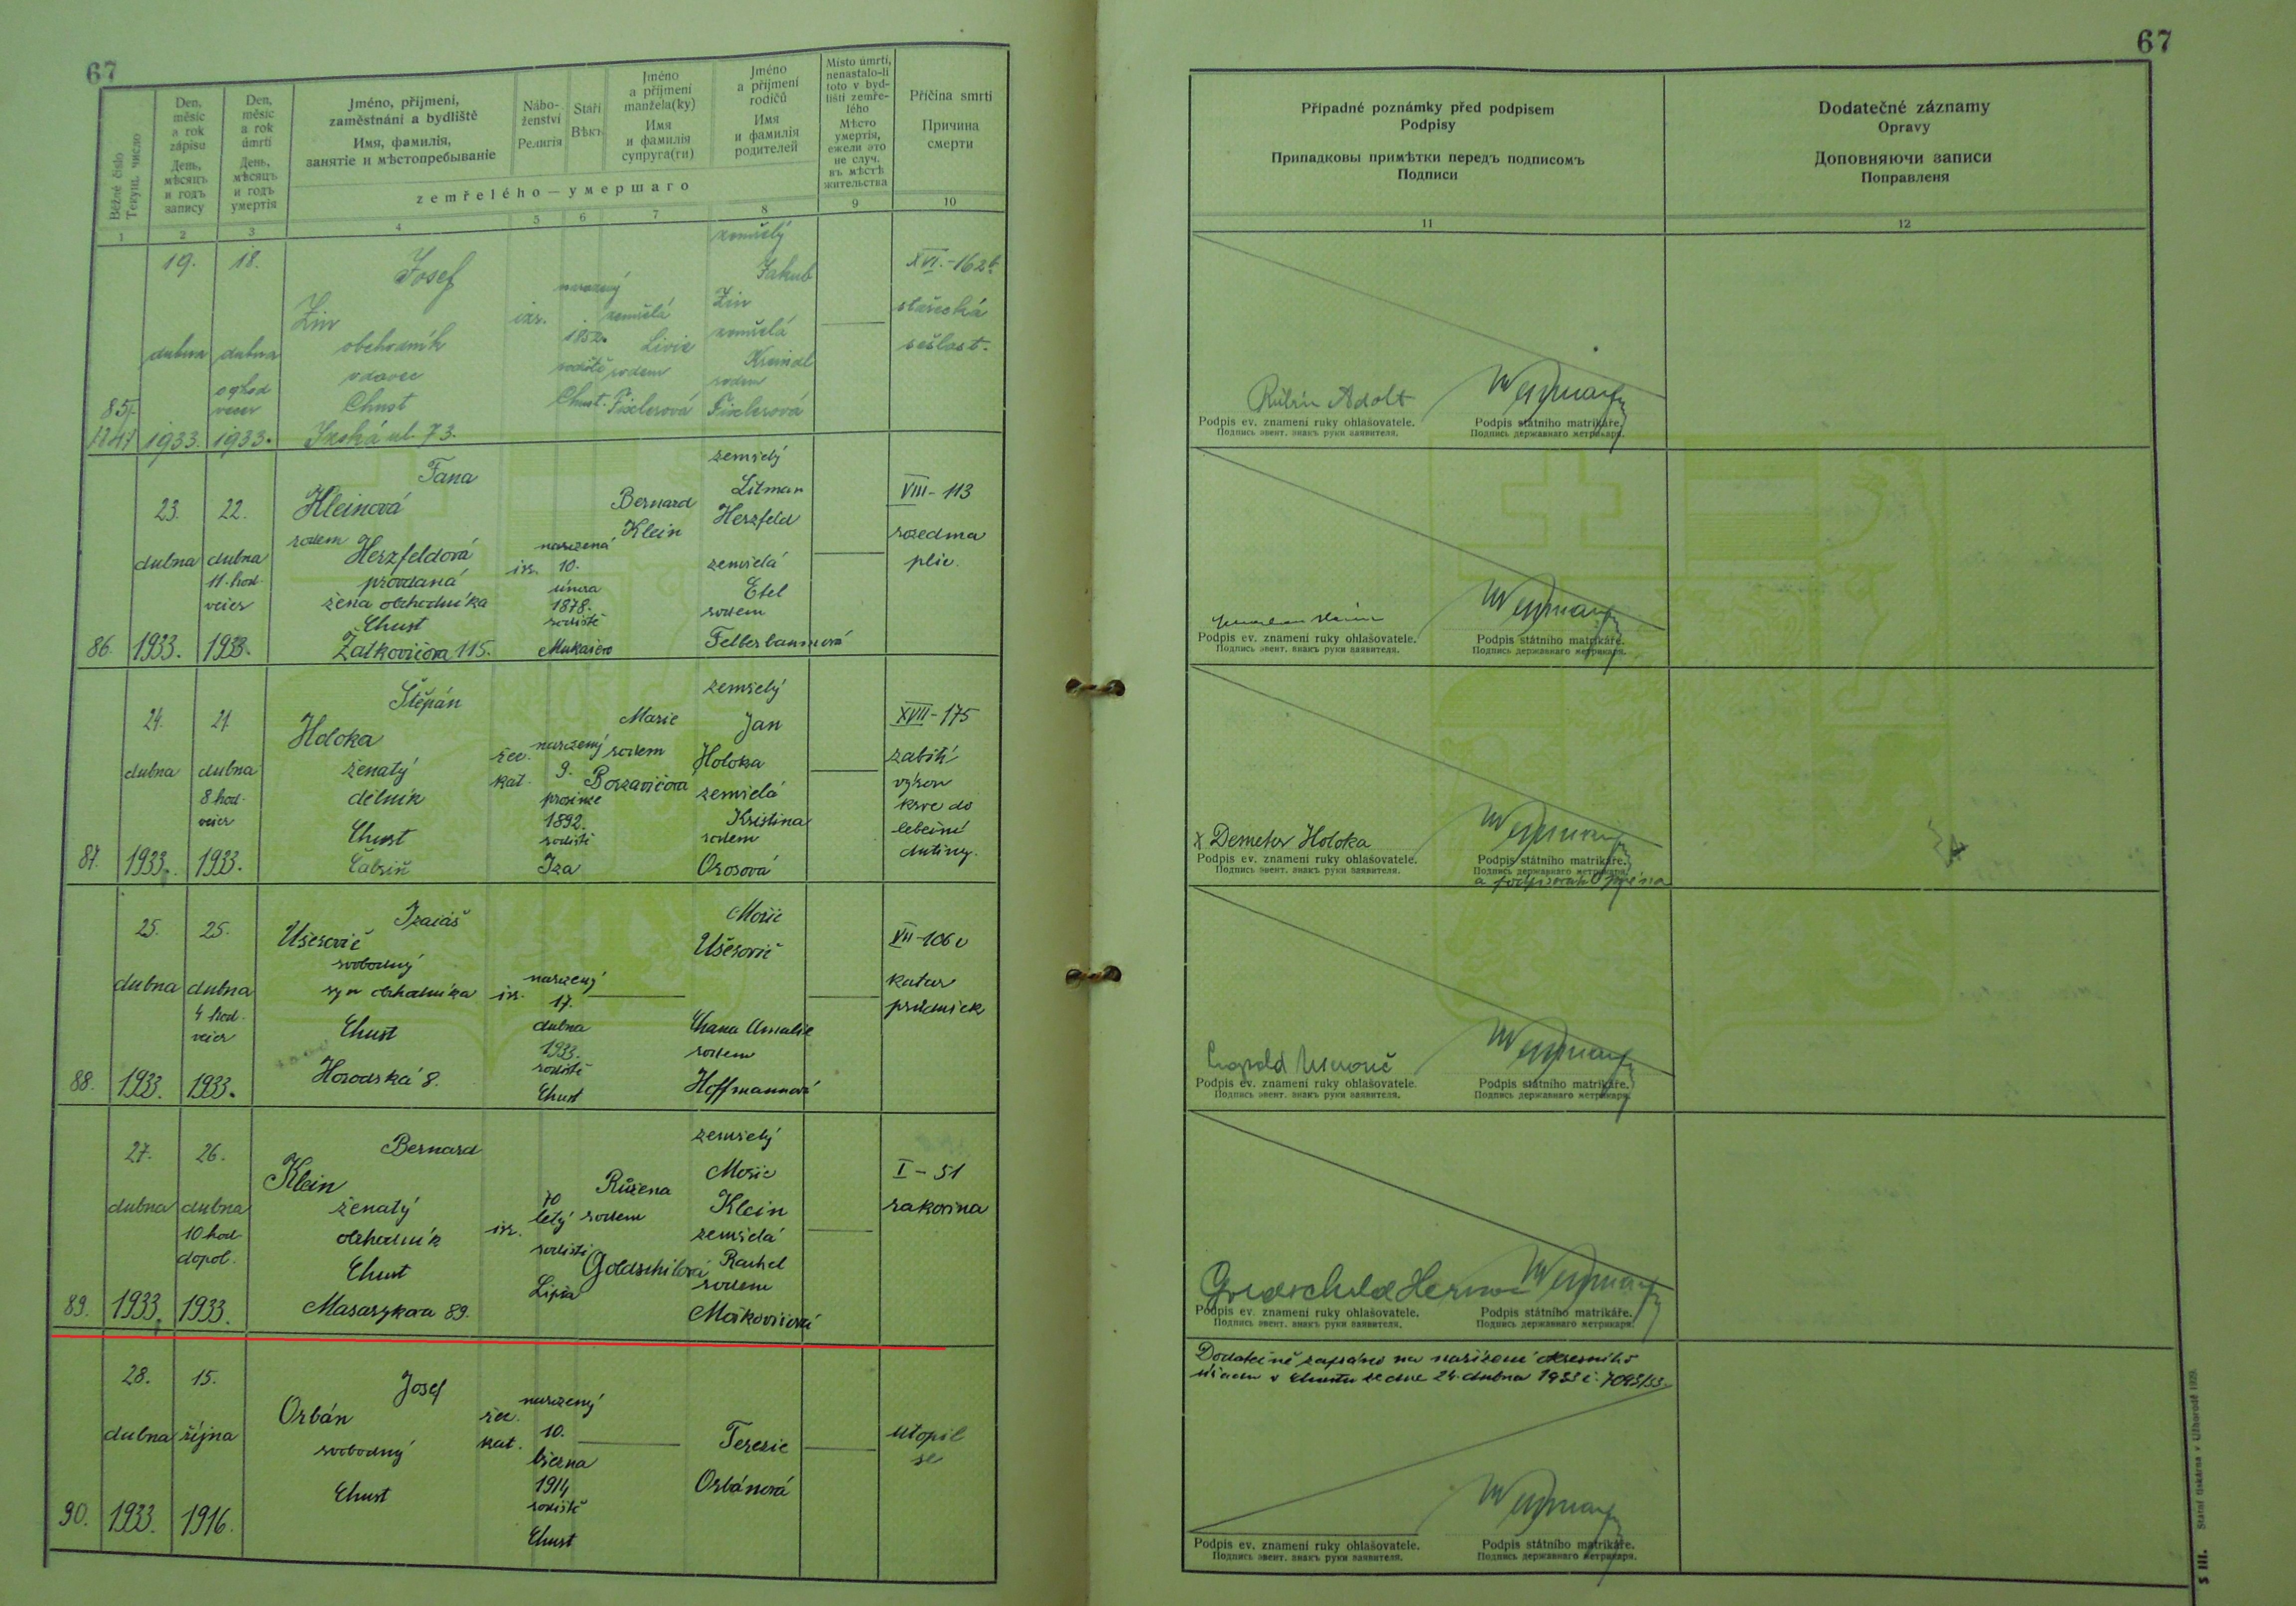 67
Běžné číslo
Текущ. число
Den,
měsíc
a rok
zápisu
День,
мѣсяцъ
и годъ
запису
Den,
měsíc
a rok
úmrtí
День,
мѣсяцъ
и годъ
умертія
Jméno, příjmení,
zaměstnání a bydliště
Имя, фамилія,
занятіе и мѣстопребываніе
Nábo-
ženství
Религія
Stáří
Вѣкъ
Jméno
a příjmení
manžela(ky)
Имя
и фамилія
супруга(ги)
Jméno
a příjmení
rodičů
Имя
и фамилія
родителей
zemřelého — умершаго
Místo úmrtí,
nenastalo-li
toto v byd-
lišti zemře-
lého
Мѣсто
умертія,
ежели это
не случ.
въ мѣстѣ
жительства
Příčina smrti
Причина
смерти
1 2 3 4 5 6 7 8 9 10
85.
19.
dubna
1933.
18.
dubna
večer
1933.
Josef
Zin
obchodník
vdovec
Chust
Izská ul. 73.
izr.
narozený
1852.
rodiště
Chust.
zemřelá
Livie
rodem
Fixlerová
zemřelý
Jakub
Zin
zemřelá
Kreindl
rodem
Fixlerová
XVI.-162b.
stařecká
sešlost.
86.
23.
dubna
1933.
22.
dubna
11. hod.
večer
1933.
Fana
Kleinová
rodem
Herzfeldová
provdaná
žena obchodníka
Chust
Žatkovičova 115.
izr.
narozená
10.
února
1878.
rodiště
Mukačevo
Bernard
Klein
zemřelý
Litman
Herzfeld
zemřelá
Etel
rodem
Felberbaumová
VIII-113
rozedma
plic.
87.
24.
dubna
1933.
21
dubna
8 hod.
večer
1933.
Štěpán
Holoka
ženatý
dělník
Chust
Čabrin
řec.
kat.
narozený
9.
prosince
1892.
rodiště
Iza
Marie
rodem
Borzavičova
zemřelý
Jan
Holoka
zemřelá
Kristina
rodem
Orosová
XVII-175
zabití
výron
krve do
lebeční
dutiny.
88.
25.
dubna
1933.
25.
dubna
4 hod.
večer
1933.
Izaiáš
Ušerovič
svobodný
syn obchodníka
Chust
Horodská 8.
izr.
narozený
17.
dubna
1933.
rodiště
Chust
Mořic
Ušerovič
Chana Amalie
rodem
Hoffmannová
VII-106 c
katar
průdušek
89.
27.
dubna
1933.
26.
dubna
10 hod
dopol.
1933.
Bernard
Klein
ženatý
obchodník
Chust
Masarykova 89.
izr.
70
letý
rodiště
Lipša
Růžena
rodem
Goldschildová
zemřelý
Mořic
Klein
zemřelá
Rachel
rodem
Moškovičová
I-51
rakovina
90.
28.
dubna
1933.
15.
října
1916.
Josef
Orbán
svobodný
Chust
řec.
kat.
narozený
10.
března
1914
rodiště
Chust
Terezie
Orbánová
utopil
se
67
Případné poznámky před podpisem
Podpisy
Припадковы примѣтки передъ подписомъ
Подписи
Dodatečné záznamy
Opravy
Доповняючи записи
Поправленя
11 12
Rubin Adolt
Podpis ev. znamení ruky ohlašovatele.
Подпись эвент. знакъ руки заявителя.
Podpis státního matrikáře.
Подпись державнаго метрикаря.
Podpis ev. znamení ruky ohlašovatele.
Подпись эвент. знакъ руки заявителя.
Podpis státního matrikáře.
Подпись державнаго метрикаря.
x Demeter Holoka
Podpis ev. znamení ruky ohlašovatele.
Подпись эвент. знакъ руки заявителя.
Podpis státního matrikáře.
Подпись державнаго метрикаря.
Podpis ev. znamení ruky ohlašovatele.
Подпись эвент. знакъ руки заявителя.
Podpis státního matrikáře.
Подпись державнаго метрикаря.
Goldschild Herman
Podpis ev. znamení ruky ohlašovatele.
Подпись эвент. знакъ руки заявителя.
Podpis státního matrikáře.
Подпись державнаго метрикаря.
Dodatečně zapsáno na nařízení okresního
úřadu v Chustu ze dne 24. dubna 1933 č. 7093/33.
Podpis ev. znamení ruky ohlašovatele.
Подпись эвент. знакъ руки заявителя.
Podpis státního matrikáře.
Подпись державнаго метрикаря.
S III. Státní tiskárna v Užhorodě 1929.